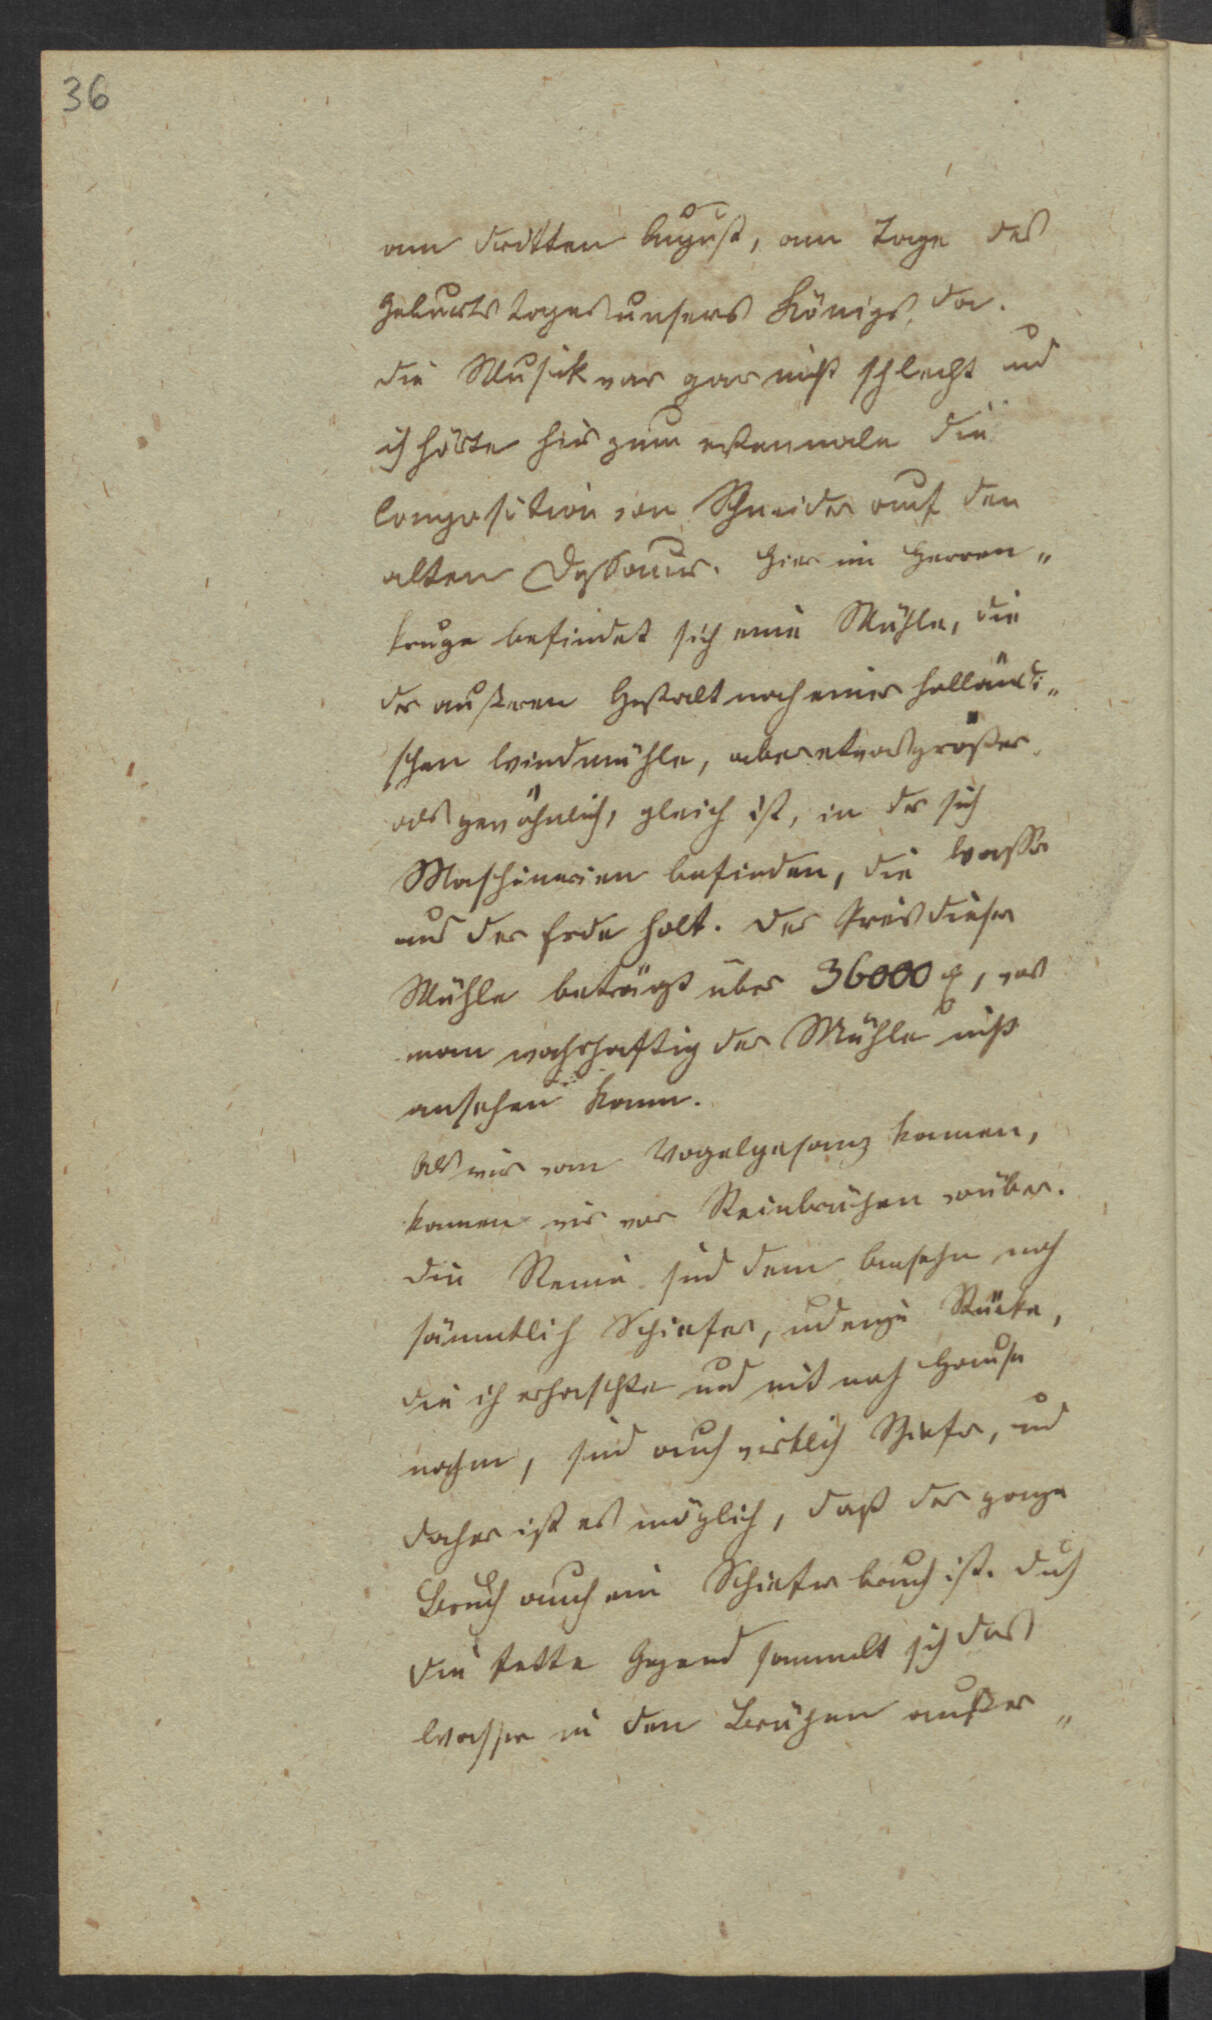 36
am dritten August, am Tage des
Geburtstages unsers Königs, da.
die Musick war gar nicht schlecht und
ich hörte hier zum erstenmale die
Composition von Schneider auf den
alten Dessauer. Hier im Herren„
kruge befindet sich eine Mühle, die
der außeren Gestalt nach einer holländi„
schen Windmühle, aber etwas größer
als gewöhnlich, gleich ist, in der sich
Maschinerien befinden, die Wasser
aus der Erde holt. Der Preis dieser
Mühle beträgt über 36000 , was
man wahrhaftig der Mühle nicht
ansehen kann.
Als wir vom Vogelgesang kamen,
kamen wir vor Steinbrüchen vorüber.
Die Steine sind dem Ansehn nach
sämmtlich Schiefer, und einige Stücke,
die ich erhaschte und mit nach Hause
nahm, sind auch wirklich Schiefer, und
daher ist es möglich, daß der ganze
Bruch auch ein Schieferbruch ist. Durch
die fette Gegend sammelt sich das
Wasser in den Brüchen außer„